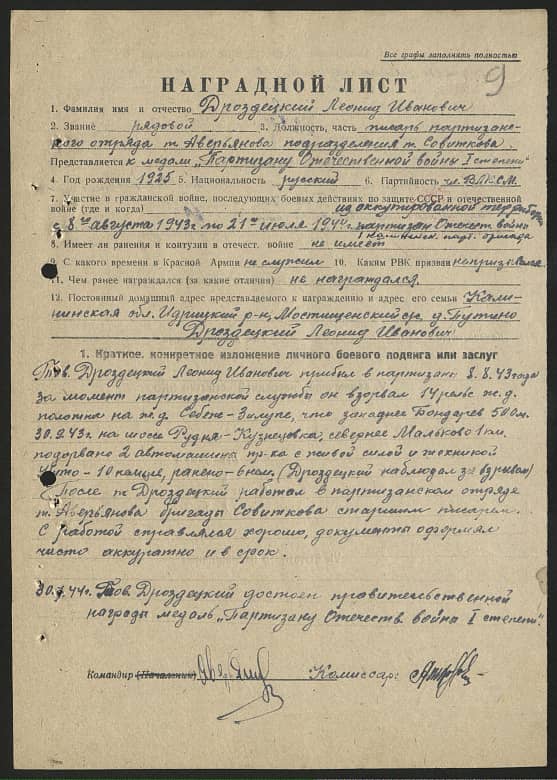 Все графы заполнять полностью
9
НАГРАДНОЙ ЛИСТ
1. Фамилия имя и отчество Дроздецкий Леонид Иванович
2. Звание рядовой 3. Должность, часть писарь партизанс-
кого отряда т. Аверьянова подразделения т. Совиткова.
Представляется к медали „Партизану Отечественной войны I степени"
4. Год рождения 1925 5. Национальность русский 6. Партийность чл. ВЛКСМ.
7. Участие в гражданской войне, последующих боевых действиях по защите СССР и отечественной
войне (где и когда) на оккупированной территории
с 8го августа 1943г. по 21е июля 1944г. партизан Отечест война
8. Имеет ли ранения и контузии в отечест. войне не имеет
9. С какого времени в Красной Армии не служил 10. Каким РВК призван не призывался
11. Чем ранее награждался (за какие отличия) не награждался.
12. Постоянный домашний адрес представляемого к награждению и адрес его семьи Кали-
нинская обл. Идрицкий р-н, Мостищенский с/с д. Путино
Дроздецкий Леонид Иванович
1. Краткое, конкретное изложение личного боевого подвига или заслуг
Тов. Дроздецкий Леонид Иванович прибыл в партизаны 8.8.43 года
За момент партизанской службы он взорвал 14 рельс ж.д.
полотна на ж.д. Себеж-Зилупе, что западнее Бондарев 500 м.
30.9.43г. на шоссе Рудня-Кузнецовка, севернее Малаково 1 км.
подорвано 2 автомашины пр-ка с живой силой и техникой
убито - 10 немцев, ранено - 6 нем. (Дроздецкий наблюдал за взрывом)
После т. Дроздецкий работал в партизанском отряде
т. Аверьянова бригады Совиткова старшим писарем.
С работой справлялся хорошо, документы оформлял
чисто аккуратно и в срок.
30.7.44г. Тов. Дроздецкий достоен правительственной
награды медаль „Партизану Отечеств война I степени".
Командир (Начальник) Комиссар: